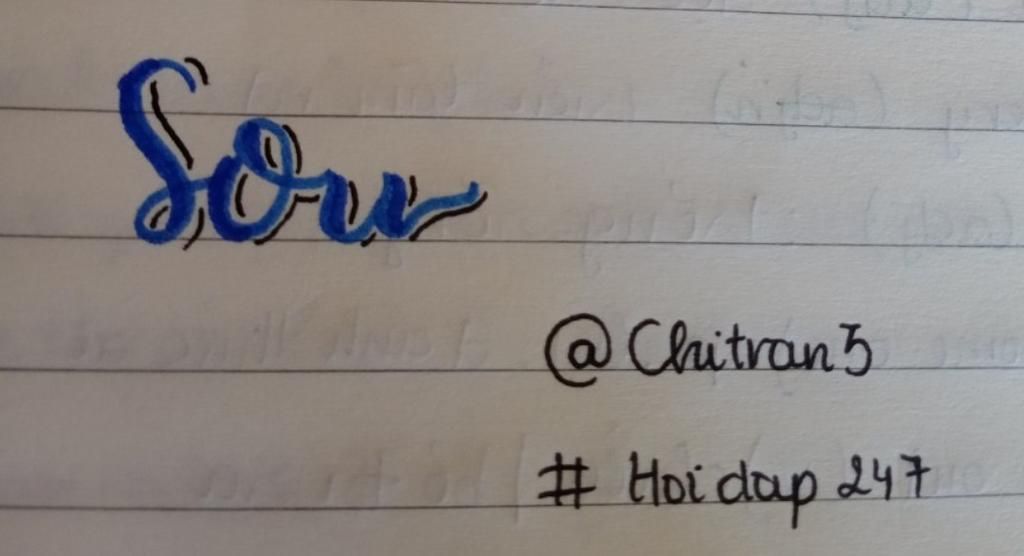 Sou
@Chitran5
# Hoidap 247